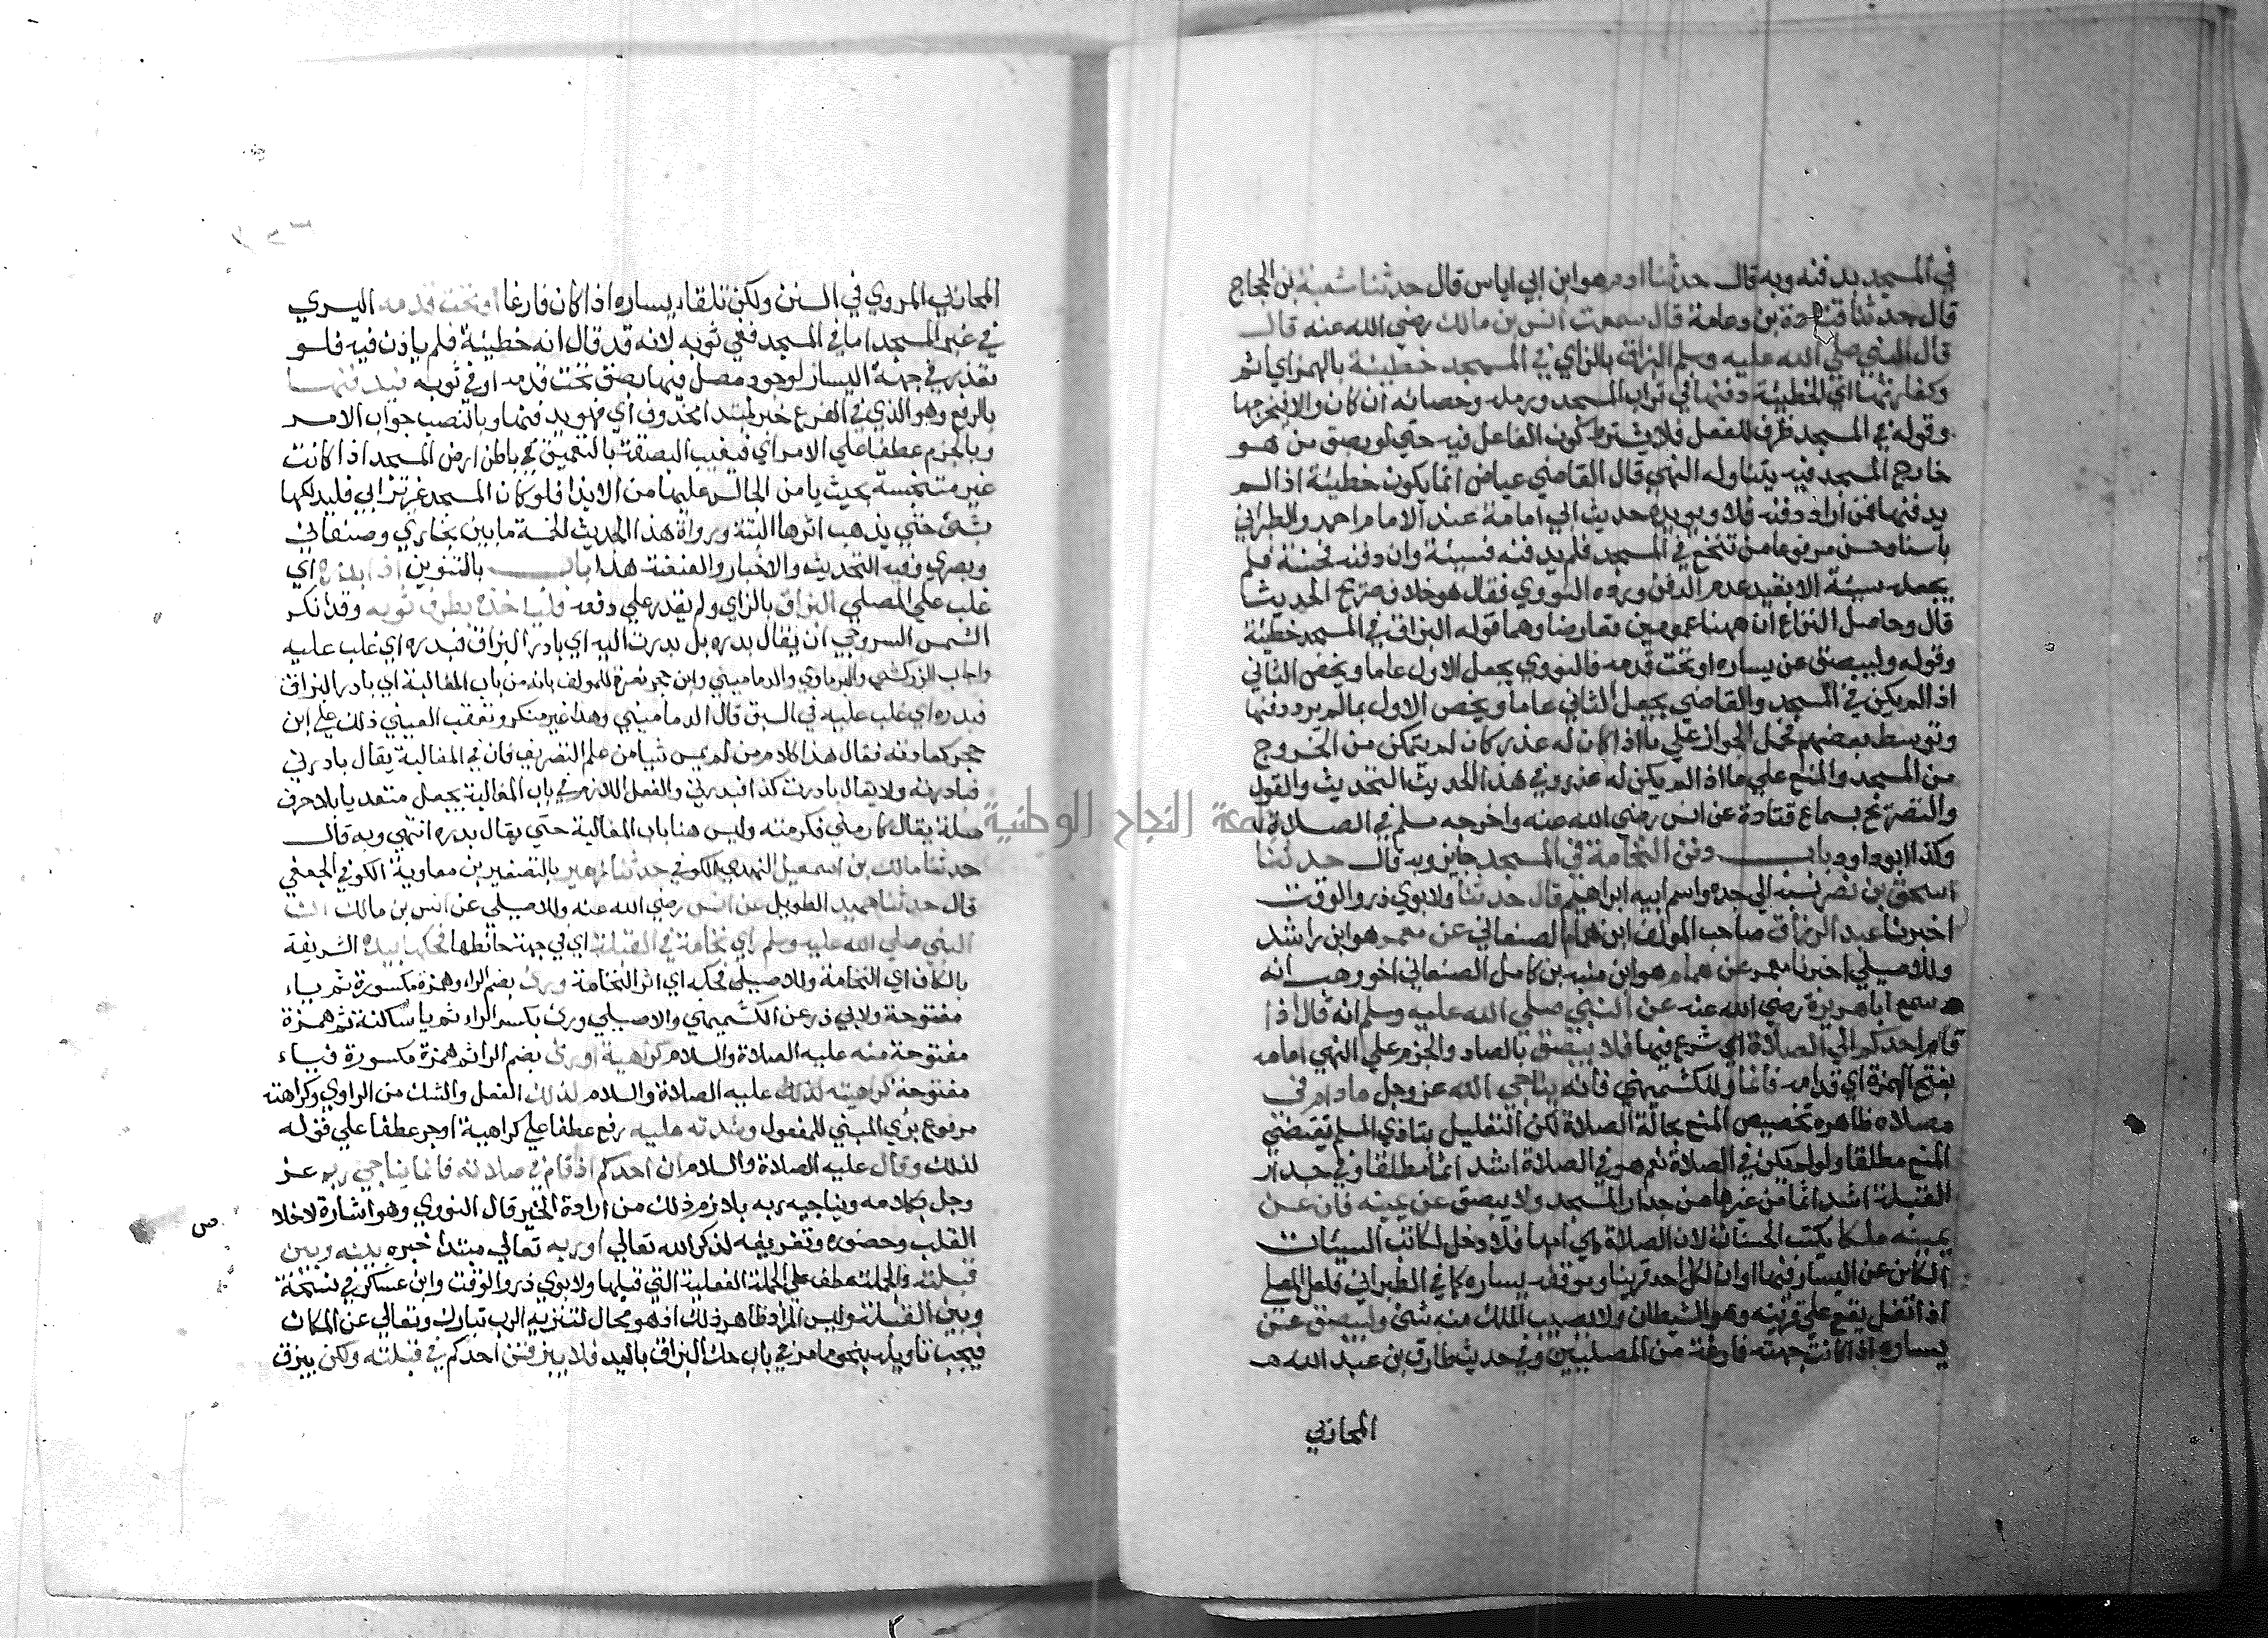 في المسجد يدفنه وبه قال حدثنا ادم هو ابن ابي اياس قال حدثنا شعبة بن الحجاج
قال حدثنا قتادة بن دعامة قال سمعت انس بن مالك رضي الله عنه قال
قال النبي صلي الله عليه وسلم البزاق بالزاي في المسجد خطيئة بالهمز اي اثم
وكفارتها اي الخطيئة دفنها في تراب المسجد ورمله وحصائه ان كان والا فيخرجها
وقوله في المسجد ظرف للفعل فلا يشترط كون الفاعل فيه حتي لو بصق من هو
خارج المسجد فيه يتناوله النهي قال القاضي عياض انما يكون خطيئة اذا لم
يدفنها فمن اراد دفنه فلا ويؤيده حديث ابي امامة عند الامام احمد والطبراني
باسناد حسن مرفوعا من تنخع في المسجد فلم يدفنه فسيئة وان دفنه فحسنة فلم
يجعله سيئة الا بقيد عدم الدفن ورده النووي فقال هو خلاف صريح الحديث
قال وحاصل النزاع ان ههنا عمومين تعارضا وهما قوله البزاق في المسجد خطيئة
وقوله وليبصق عن يساره او تحت قدمه فالنووي يجعل الاول عاما ويخص الثاني
اذا لم يكن في المسجد والقاضي يجعل الثاني عاما ويخص الاول بما لم يرد دفنها
وتوسط بعضهم فحمل الجواز علي ما اذا كان له عذر كان لم يتمكن من الخروج
من المسجد والمنع علي ما اذا لم يكن له عذر وفي هذا الحديث التحديث والقول
والتصريح بسماع قتادة عن انس رضي الله عنه واخرجه مسلم في الصلاة
وكذا ابو داود باب دفن النخامة في المسجد جايز وبه قال حدثنا
اسحق بن نصر نسبه الي جده واسم ابيه ابراهيم قال حدثنا ولابوي ذر والوقت
اخبرنا عبد الرزاق صاحب المولف ابن همام الصنعاني عن معمر هو ابن راشد
وللاصيلي اخبرنا معمر عن همام هو ابن منبه بن كامل الصنعاني اخو وهب انه
سمع ابا هريرة رضي الله عنه عن النبي صلي الله عليه وسلم انه قال اذا
قام احدكم الي الصلاة اي شرع فيها فلا يبصق بالصاد والجزم علي النهي امامه
بفتح الهمزة اي قدامه فانما وللكشميهني فانه يناجي الله عز وجل ما دام في
مصلاه ظاهره تخصيص المنع بحالة الصلاة لكن التعليل بتاذي المسلم يقتضي
المنع مطلقا ولو لم يكن في الصلاة نعم هو في الصلاة اشد اثما مطلقا وفي جدار
القبلة اشد اثما من غيرها من جدار المسجد ولا يبصق عن يمينه فان عن
يمينه ملكا يكتب الحسنات لان الصلاة هي امها فلا دخل لكاتب السيئات
الكاين عن اليسار فيها او ان لكل احد قرينا وموقفه يساره كما في الطبراني فلعل المصلي
اذا تفل يقع علي قرينه وهو الشيطان ولا يصيب الملك منه شي وليبصق عن
يساره اذا كانت جهته فارغة من المصلين وفي حديث طارق بن عبد الله
المحاربي
المحاربي المروي في السنن ولكن تلقاء يساره اذا كان فارغا او تحت قدمه اليسري
في غير المسجد اما في المسجد ففي ثوبه لانه قد قال انه خطيئة فلم ياذن فيه فلو
تعذر في جهة اليسار لوجود مصل فيها بصق تحت قدمه او في ثوبه فيدفنها
بالرفع وهو الذي في الفرع خبر لمبتدا محذوف اي فهو يدفنها وبالنصب جواب الامر
وبالجزم عطفا علي الامر اي فيغيب البصقة بالتعميق في باطن ارض المسجد اذا كانت
غير متنجسة بحيث يامن الجالس عليها من الايذا فلو كان المسجد غير ترابي فليدلكها
بشي حتي يذهب اثرها البتة ورواة هذا الحديث الخمسة ما بين بخاري وصنعاني
وبصري وفيه التحديث والاخبار والعنعنة هذا باب بالتنوين اذا بدره اي
غلب علي المصلي البزاق بالزاي ولم يقدر علي دفعه فلياخذه بطرف ثوبه وقد انكر
الشمس السروجي ان يقال بدره بل بدرت اليه اي بادر البزاق فبدره اي غلب عليه
واجاب الزركشي والبرماوي والدماميني وابن حجر نصرة للمولف بانه من باب المغالبة اي بادر البزاق
فبدره اي غلب عليه في السبق قال الدماميني وهذا غير منكر وتعقب العيني ذلك علي ابن
حجر كعادته فقال هذا كلام من لم يمس شيا من علم التصريف فان في المغالبة يقال بادرني
فبادرته ولا يقال بادرت كذا فبدرني والفعل اللازم في باب المغالبة يجعل متعديا بلا حرف
صلة يقال كارمني فكرمته وليس هنا باب المغالبة حتي يقال بدره انتهي وبه قال
حدثنا مالك بن اسمعيل النهدي الكوفي حدثنا زهير بالتصغير بن معاوية الكوفي الجعفي
قال حدثنا حميد الطويل عن انس رضي الله عنه وللاصيلي عن انس بن مالك ان
النبي صلي الله عليه وسلم راي نخامة في القبلة اي في جهة حائطها فحكها بيده الشريفة
بالكاف اي النخامة وللاصيلي فحكه اي اثر النخامة وري بضم الراء وهمزة مكسورة ثم ياء
مفتوحة ولابي ذر عن الكشميهني والاصيلي وري بكسر الراء ثم يا ساكنة ثم همزة
مفتوحة منه عليه الصلاة والسلام كراهية او ري بضم الرا ثم همزة مكسورة فياء
مفتوحة كراهيته لذلك عليه الصلاة والسلام لذلك الفعل والشك من الراوي وكراهته
مرفوع بري المبني للمفعول وشدته عليه رفع عطفا علي كراهية او جر عطفا علي قوله
لذلك وقال عليه الصلاة والسلام ان احدكم اذا قام في صلاته فانما يناجي ربه عز
وجل بكلامه ويناجيه ربه بلازم ذلك من ارادة الخير قال النووي وهو اشارة لاخلا
ص
القلب وحضوره وتفريغه لذكر الله تعالي او ربه تعالي مبتدا خبره بينه وبين
قبلته والجملة عطف علي الجملة الفعلية التي قبلها ولابوي ذر والوقت وابن عساكر في نسخة
وبين القبلة وليس المراد ظاهر ذلك اذ هو محال لتنزيه الرب تبارك وتعالي عن المكان
فيجب تاويله بنحو ما مر في باب حك البزاق باليد فلا يبزقن احدكم في قبلته ولكن يبزق